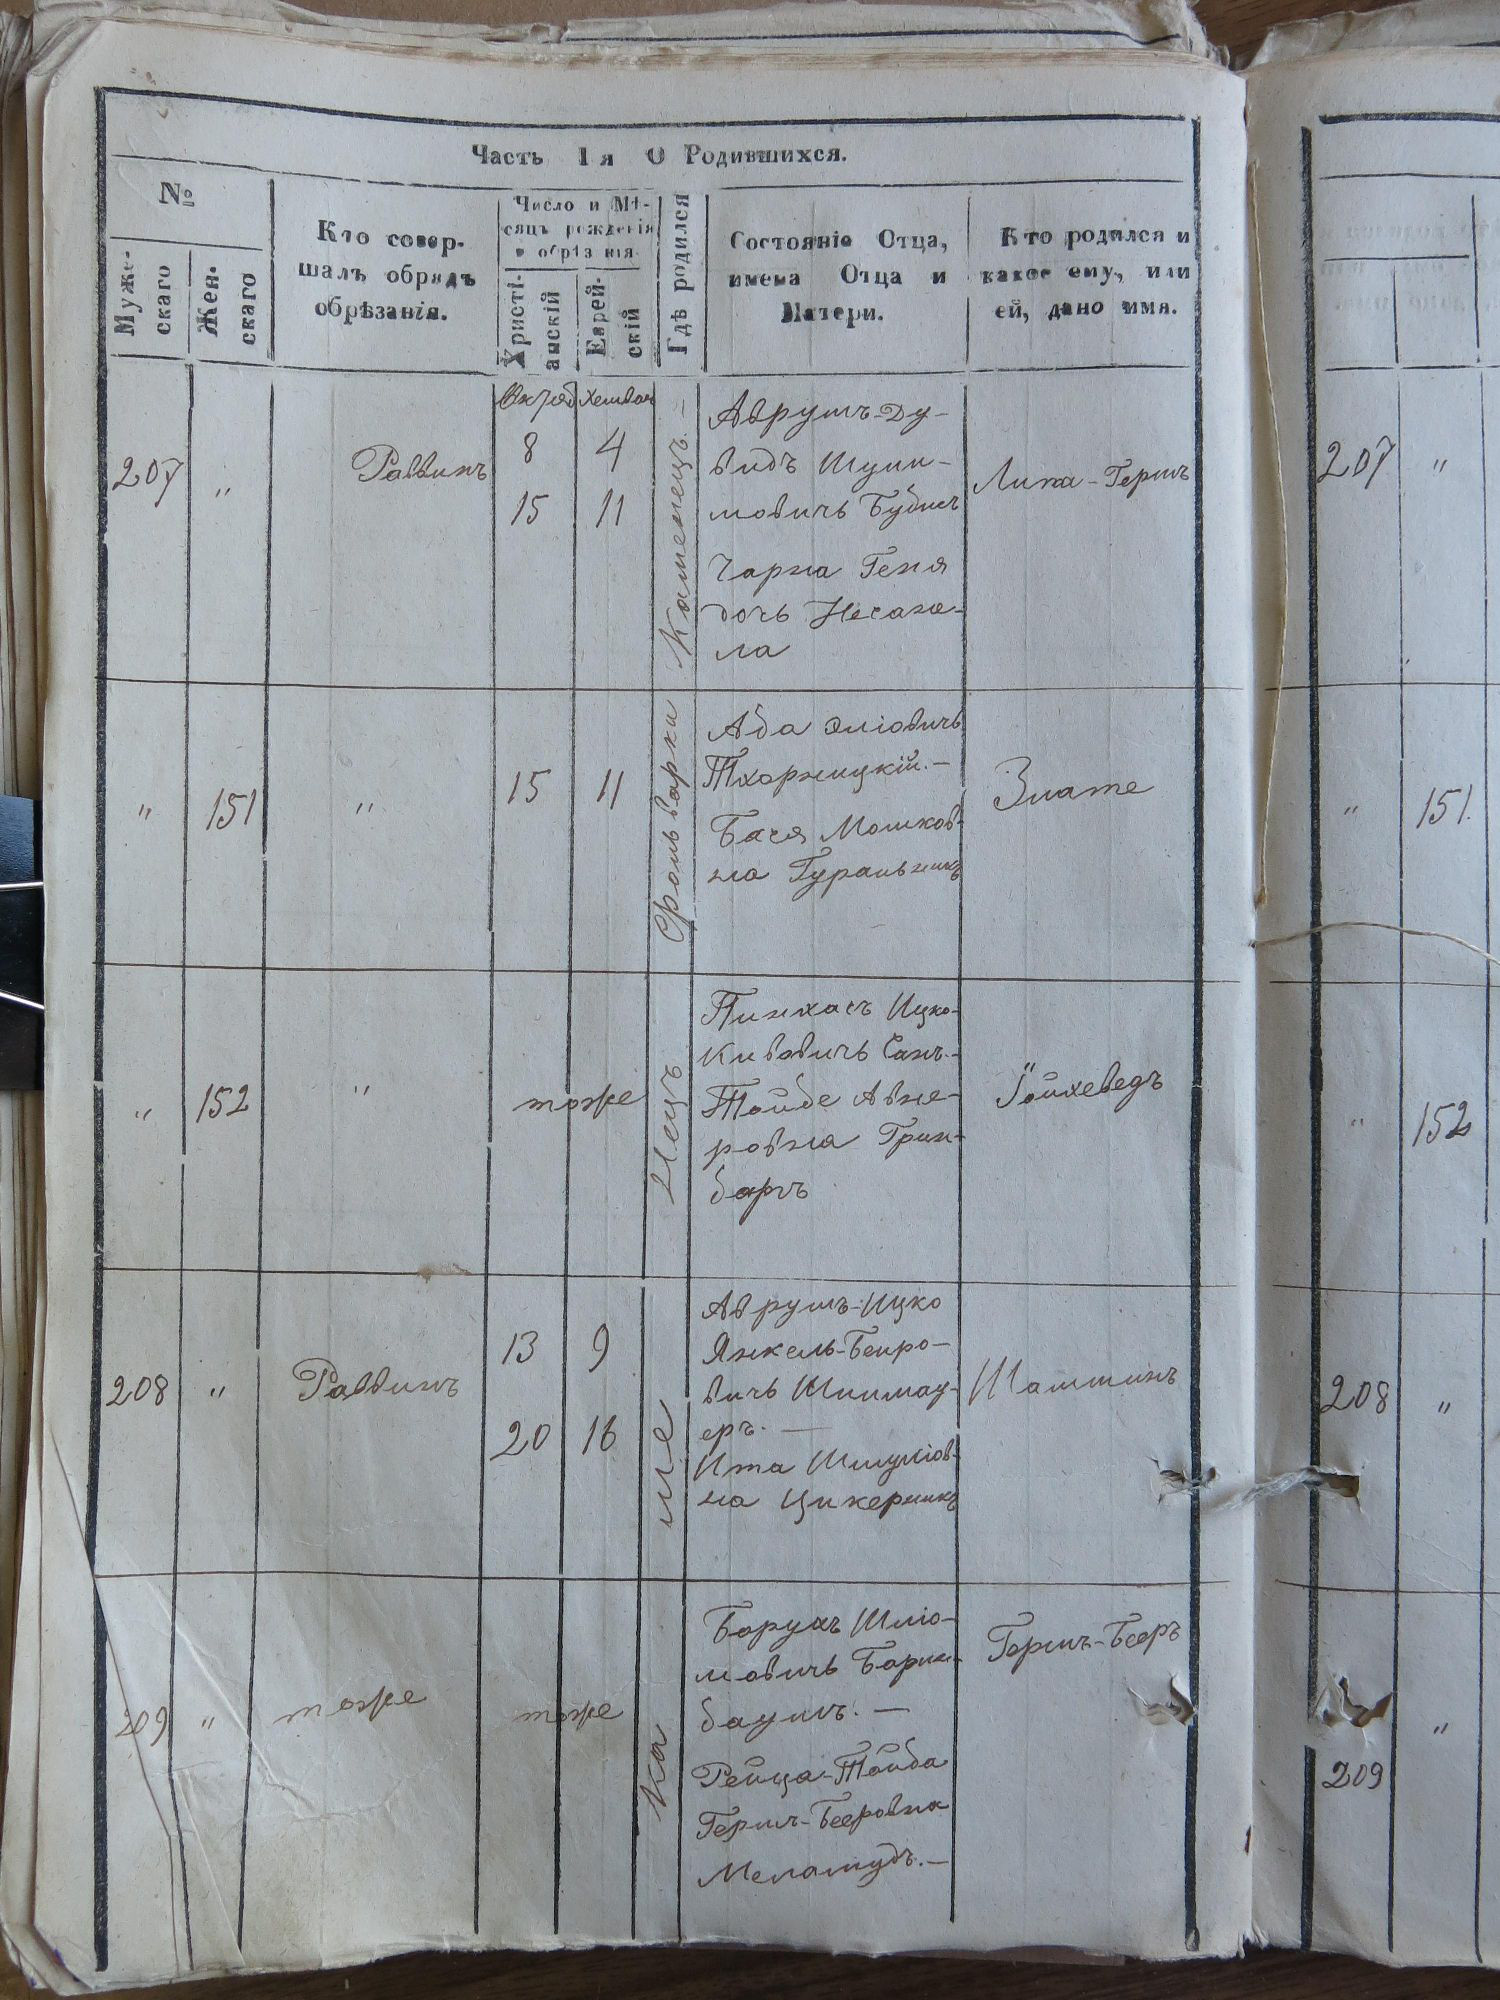 Часть 1я О Родившихся.
№
Муже-
скаго
Жен-
скаго
Кто совер-
шалъ обрядъ
обрѣзанія.
Число и Мѣ-
сяцъ рожденія
и обрѣзанія
Христі-
анскій
Еврей-
скій
Гдѣ родился
Состояніе Отца,
имена Отца и
Матери.
Кто родился и
какое ему, или
ей, дано имя.
207
"
Раввинъ
Октяб
Хешван
8
4
15
11
Каменецъ. —
Аврумъ-Ду-
видъ
мовичъ
Чарна Геня
дочь
ла
Липа-Гершъ
"
151
"
15
11
Фольварки
Аба Эліовичъ
Тхорницкій. —
Бася Мошков-
на Гуральникъ
Злате
"
152
"
тоже
нецъ
Пинхасъ Ицко-
Кивовичъ
Тойбе Авне-
ровна Грин-
бергъ
Іойхеведъ
208
"
Раввинъ
13
9
20
16
ме
Аврумъ-Ицко
Янкель-Беиро-
вичъ
еръ. —
Ита Шмуліов-
на Цикерникъ
209
"
тоже
тоже
Ка
Борухъ Шліо-
мовичъ
баумъ. —
Рейца-Тойба
Герш-Бееровна
Меламудъ. —
Гершъ-Бееръ
207
"
"
151.
"
152
208
"
"
209